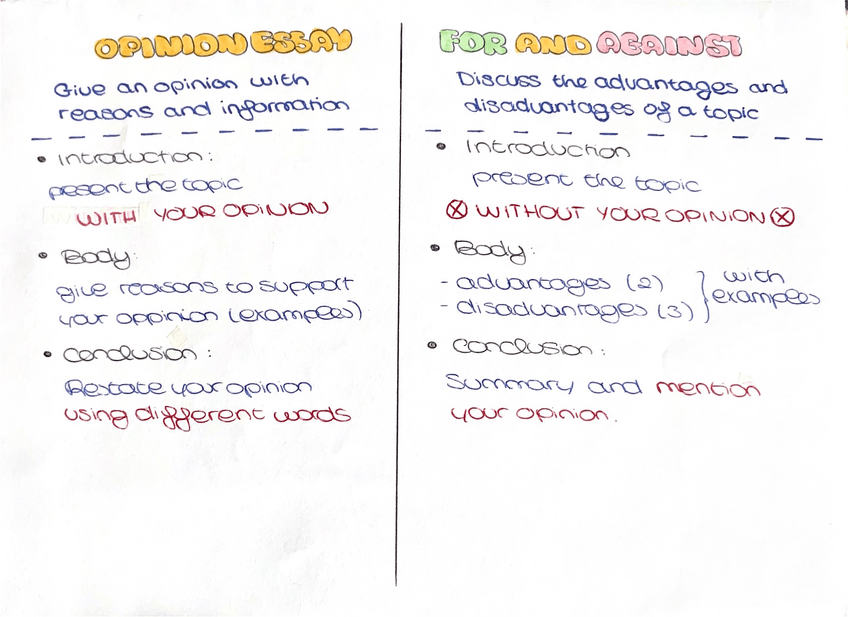 OPINION ESSAY
Give an opinion with
reasons and information
• Introduction:
present the topic
WITH YOUR OPINION
• Body:
give reasons to support
your oppinion (examples)
• Conclusion:
Restate your opinion
using different words
FOR AND AGAINST
Discuss the advantages and
disadvantages of a topic
• Introduction
present the topic
ⓧ WITHOUT YOUR OPINION ⓧ
• Body:
- advantages (2)
- disadvantages (3)
} with
examples
• Conclusion:
Summary and mention
your opinion.